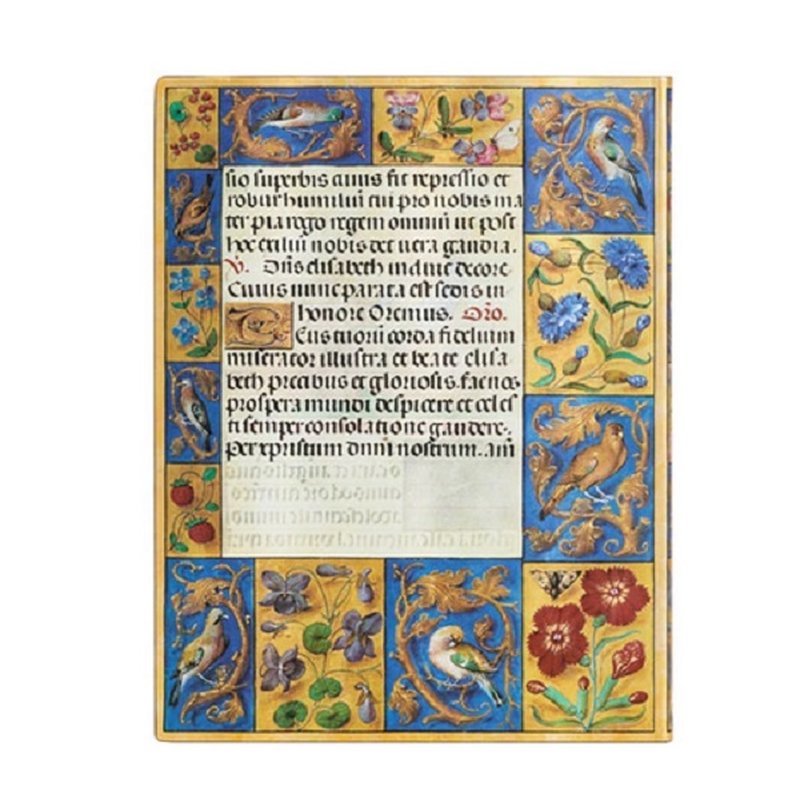 sio superbis cuius fit repressio et
robur humiliũ tui pro nobis ma
ter pia rogo regem omniũ ut post
hoc exiliũ nobis det uera gaudia.
V. Dñs elisabeth induit decore
Cuius nunc parata est sedis in
honore Oremus. Oro.
Eus tuorũ corda fidelium
miserator illustra et beate elisa
beth precibus et gloriosis. fac nos
prospera mundi despicere et celes
ti semper consolatione gaudere.
per xpistum dñm nostrum. am